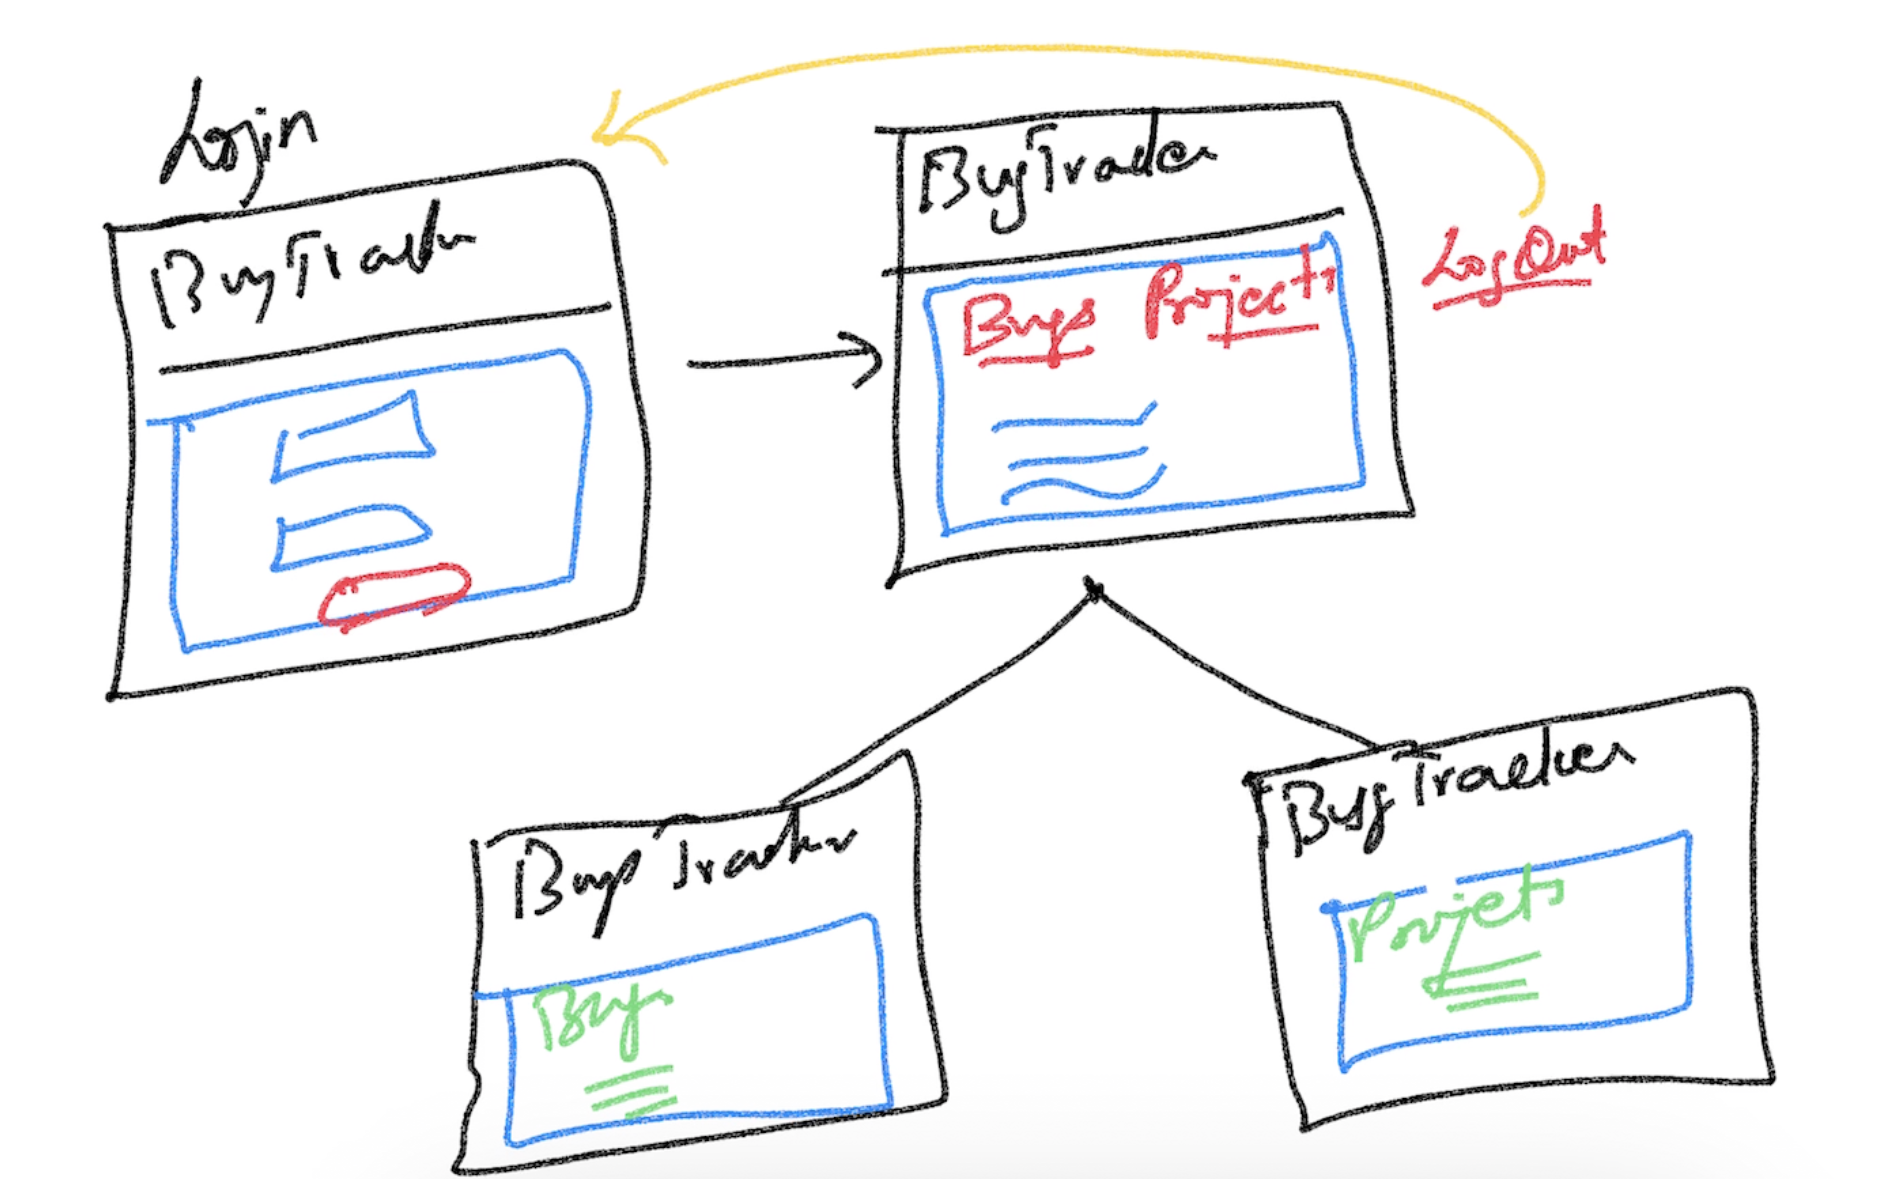 Login
BugTracker
BugTracker
Bugs Projects
LogOut
Bug Tracker
Bugs
BugTracker
Projets